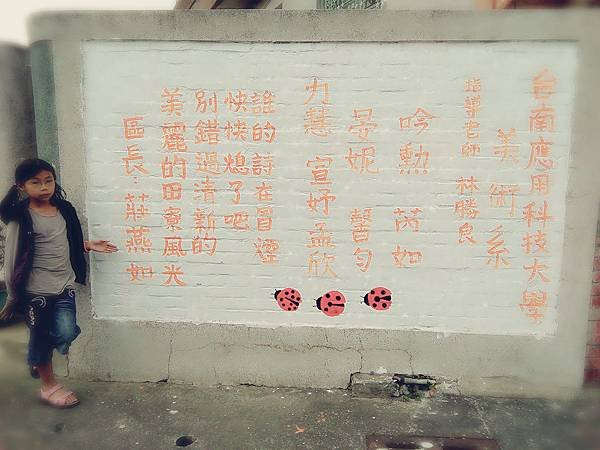 台南應用科技大學
美術系
指導老師 林勝良
吟勲 芮如
晏妮 馨勻
力慧 宣妤 孟欣
誰的詩在冒煙
快快熄了吧
別錯過清新的
美麗的田寮風光
區長:莊燕如